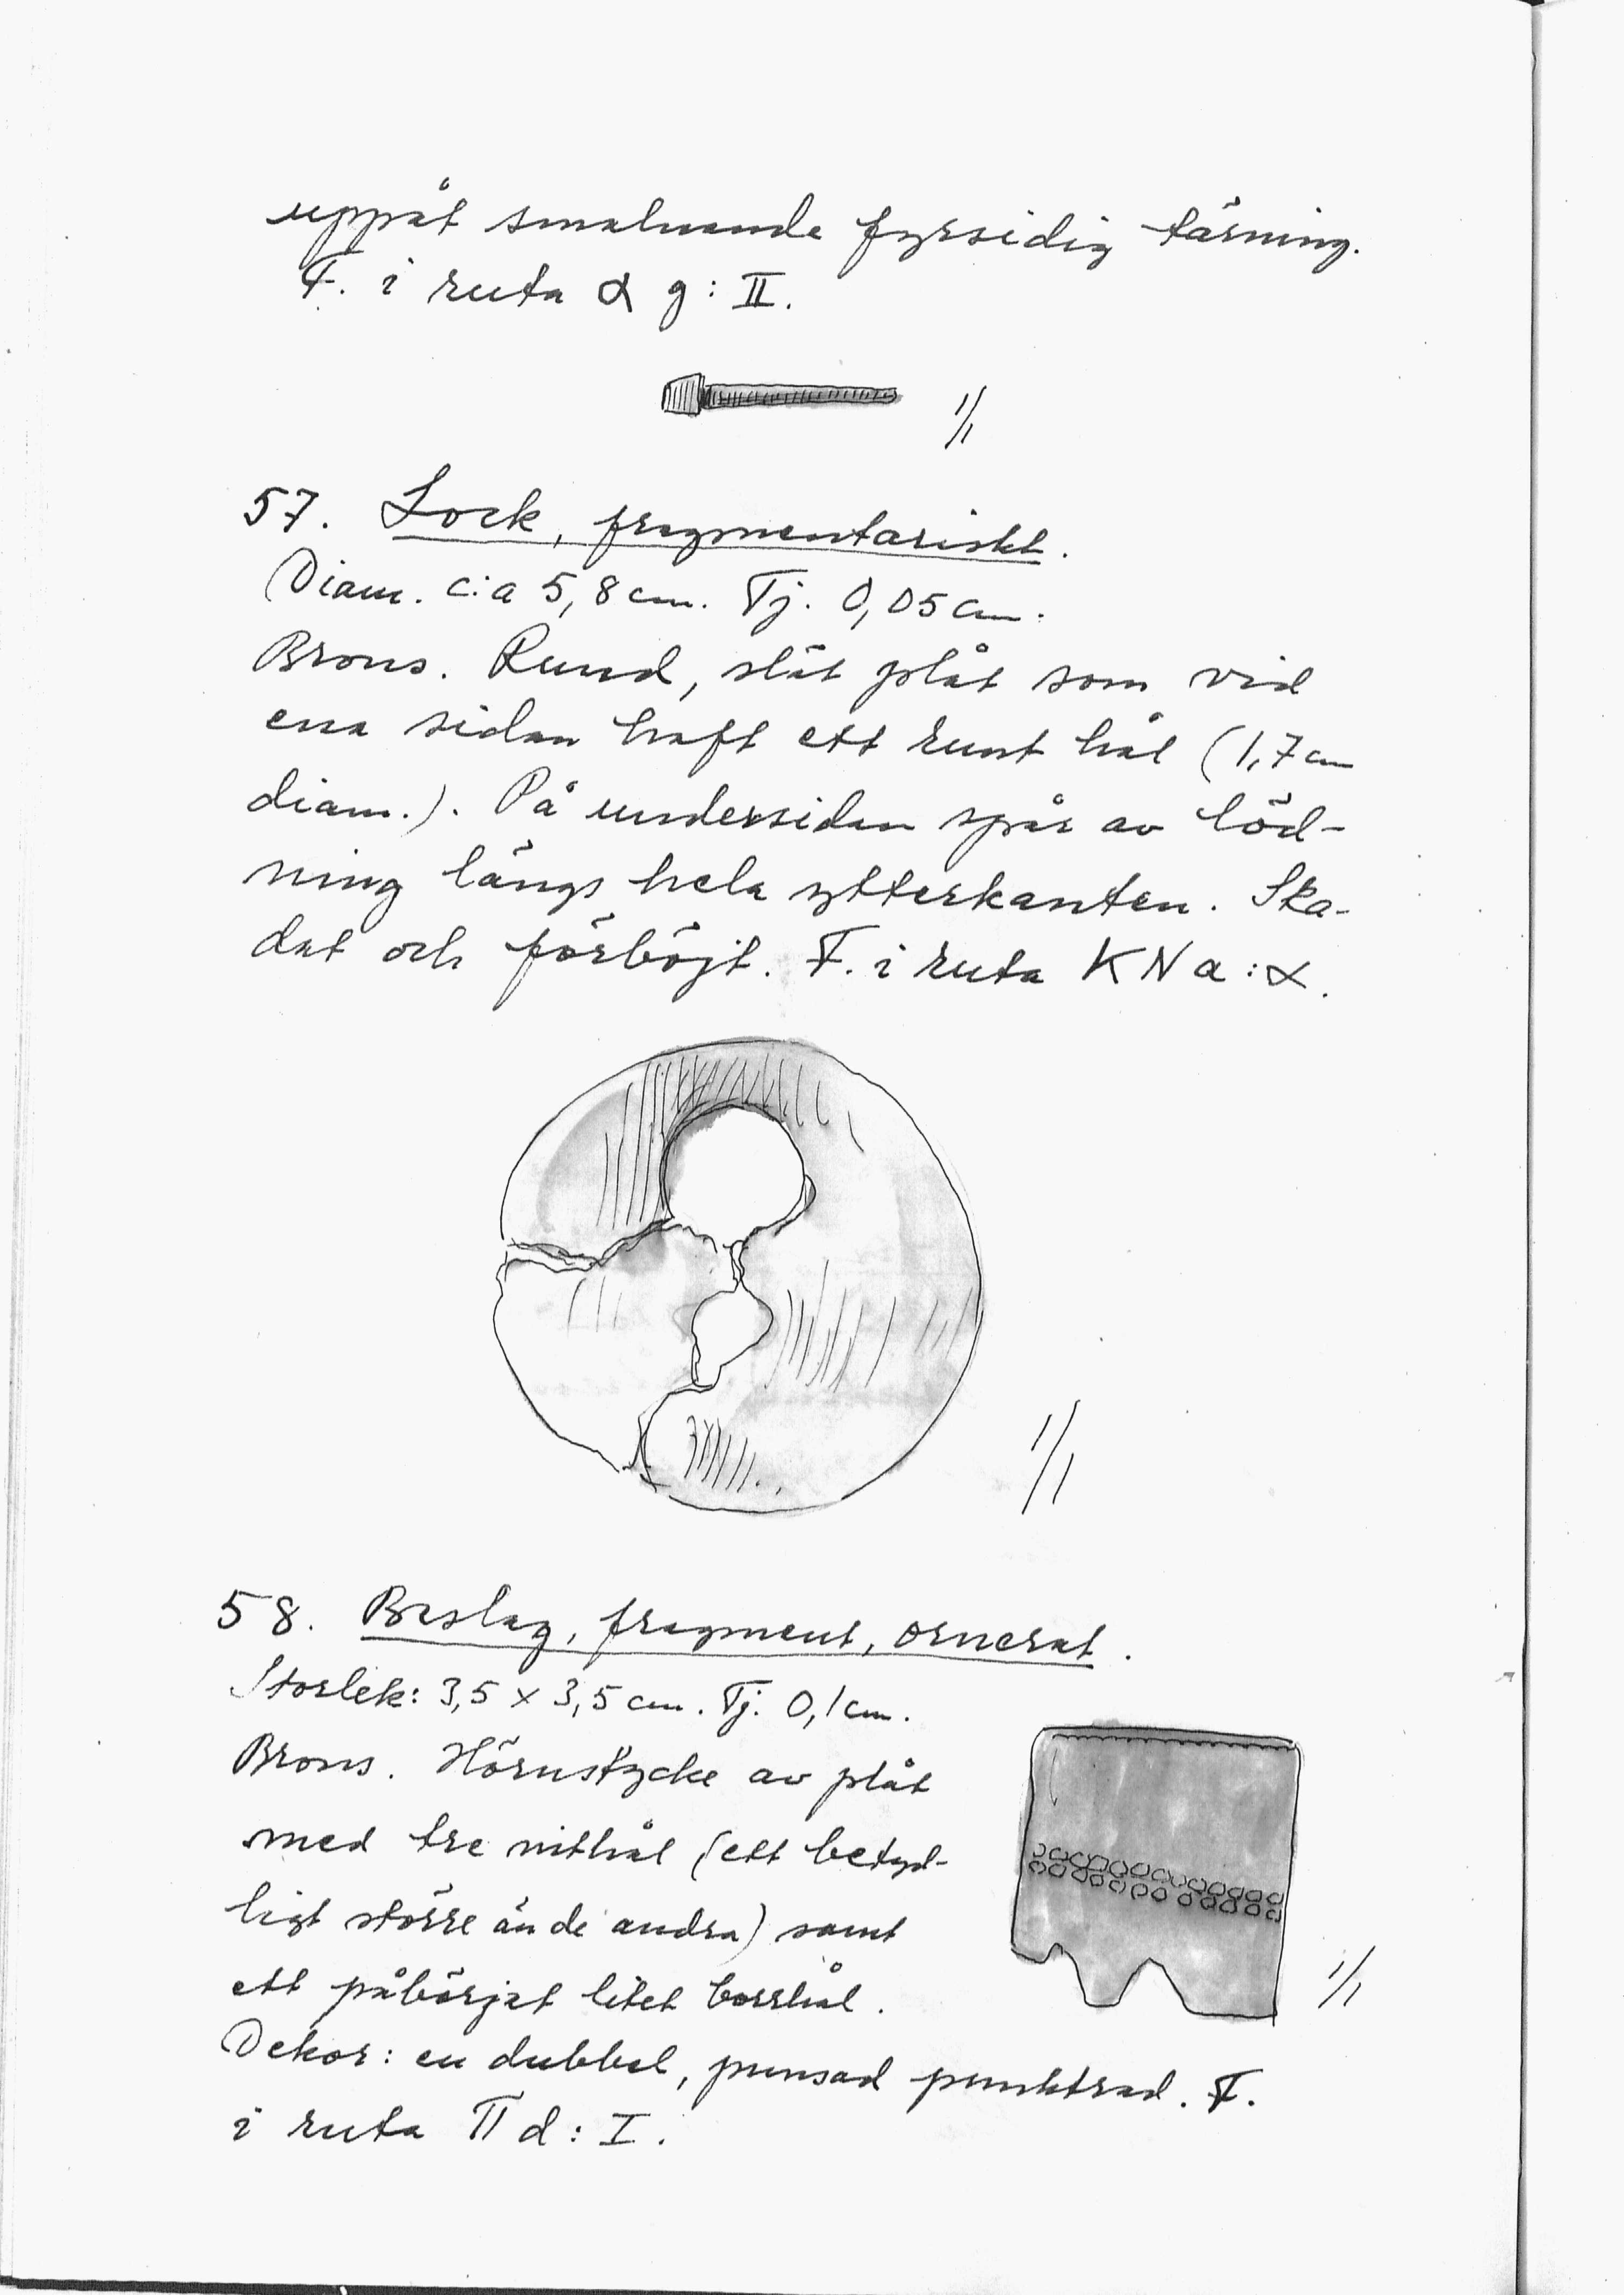 uppåt smalnande fyrsidig tärning.
F. i ruta α g : II.
1/1
57. Lock, fragmentariskt.
Diam. c:a 5,8 cm. Tj. 0,05 cm.
Brons. Rund, slät plåt som vid
ena sidan haft ett runt hål (1,7 cm
diam.). På undersidan spår av löd-
ning längs hela ytterkanten. Ska-
dat och förböjt. F. i ruta K N a : α.
1/1
58. Beslag, fragment, ornerat.
Storlek: 3,5 × 3,5 cm. Tj. 0,1 cm.
Brons. Hörnstycke av plåt
med tre nithål (ett betyd-
ligt större än de andra) samt
ett påbörjat litet borrhål.
1/1
Dekor: en dubbel, punsad punktrad. F.
i ruta Π d : I.